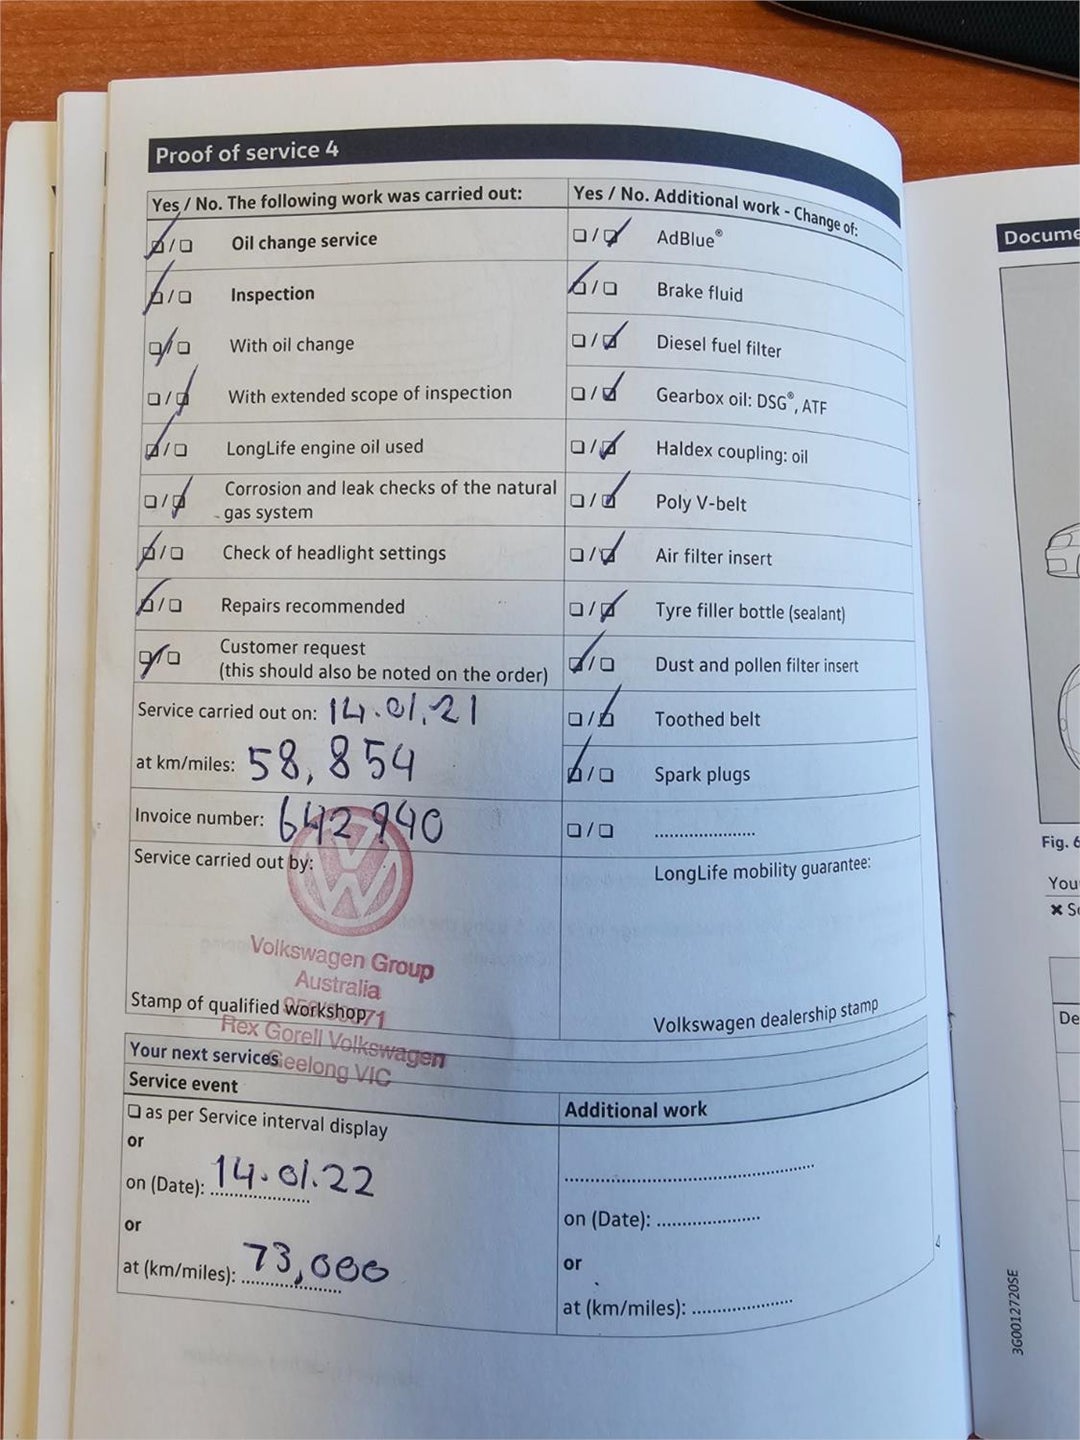 Proof of service 4
Yes / No. The following work was carried out:
Oil change service
Inspection
With oil change
With extended scope of inspection
LongLife engine oil used
Corrosion and leak checks of the natural
gas system
Check of headlight settings
Repairs recommended
Customer request
(this should also be noted on the order)
Service carried out on: 14.01.21
at km/miles: 58,854
Invoice number: 642940
Service carried out by:
Volkswagen Group
Australia
Stamp of qualified workshop
Rex Gorell Volkswagen
Geelong VIC
Yes / No. Additional work - Change of:
AdBlue®
Brake fluid
Diesel fuel filter
Gearbox oil: DSG®, ATF
Haldex coupling: oil
Poly V-belt
Air filter insert
Tyre filler bottle (sealant)
Dust and pollen filter insert
Toothed belt
Spark plugs
LongLife mobility guarantee:
Volkswagen dealership stamp
Your next services
Service event
as per Service interval display
or
on (Date): 14.01.22
or
at (km/miles): 73,000
Additional work
on (Date):
or
at (km/miles):
Docume
Fig. 6
You
De
3G0012720SE